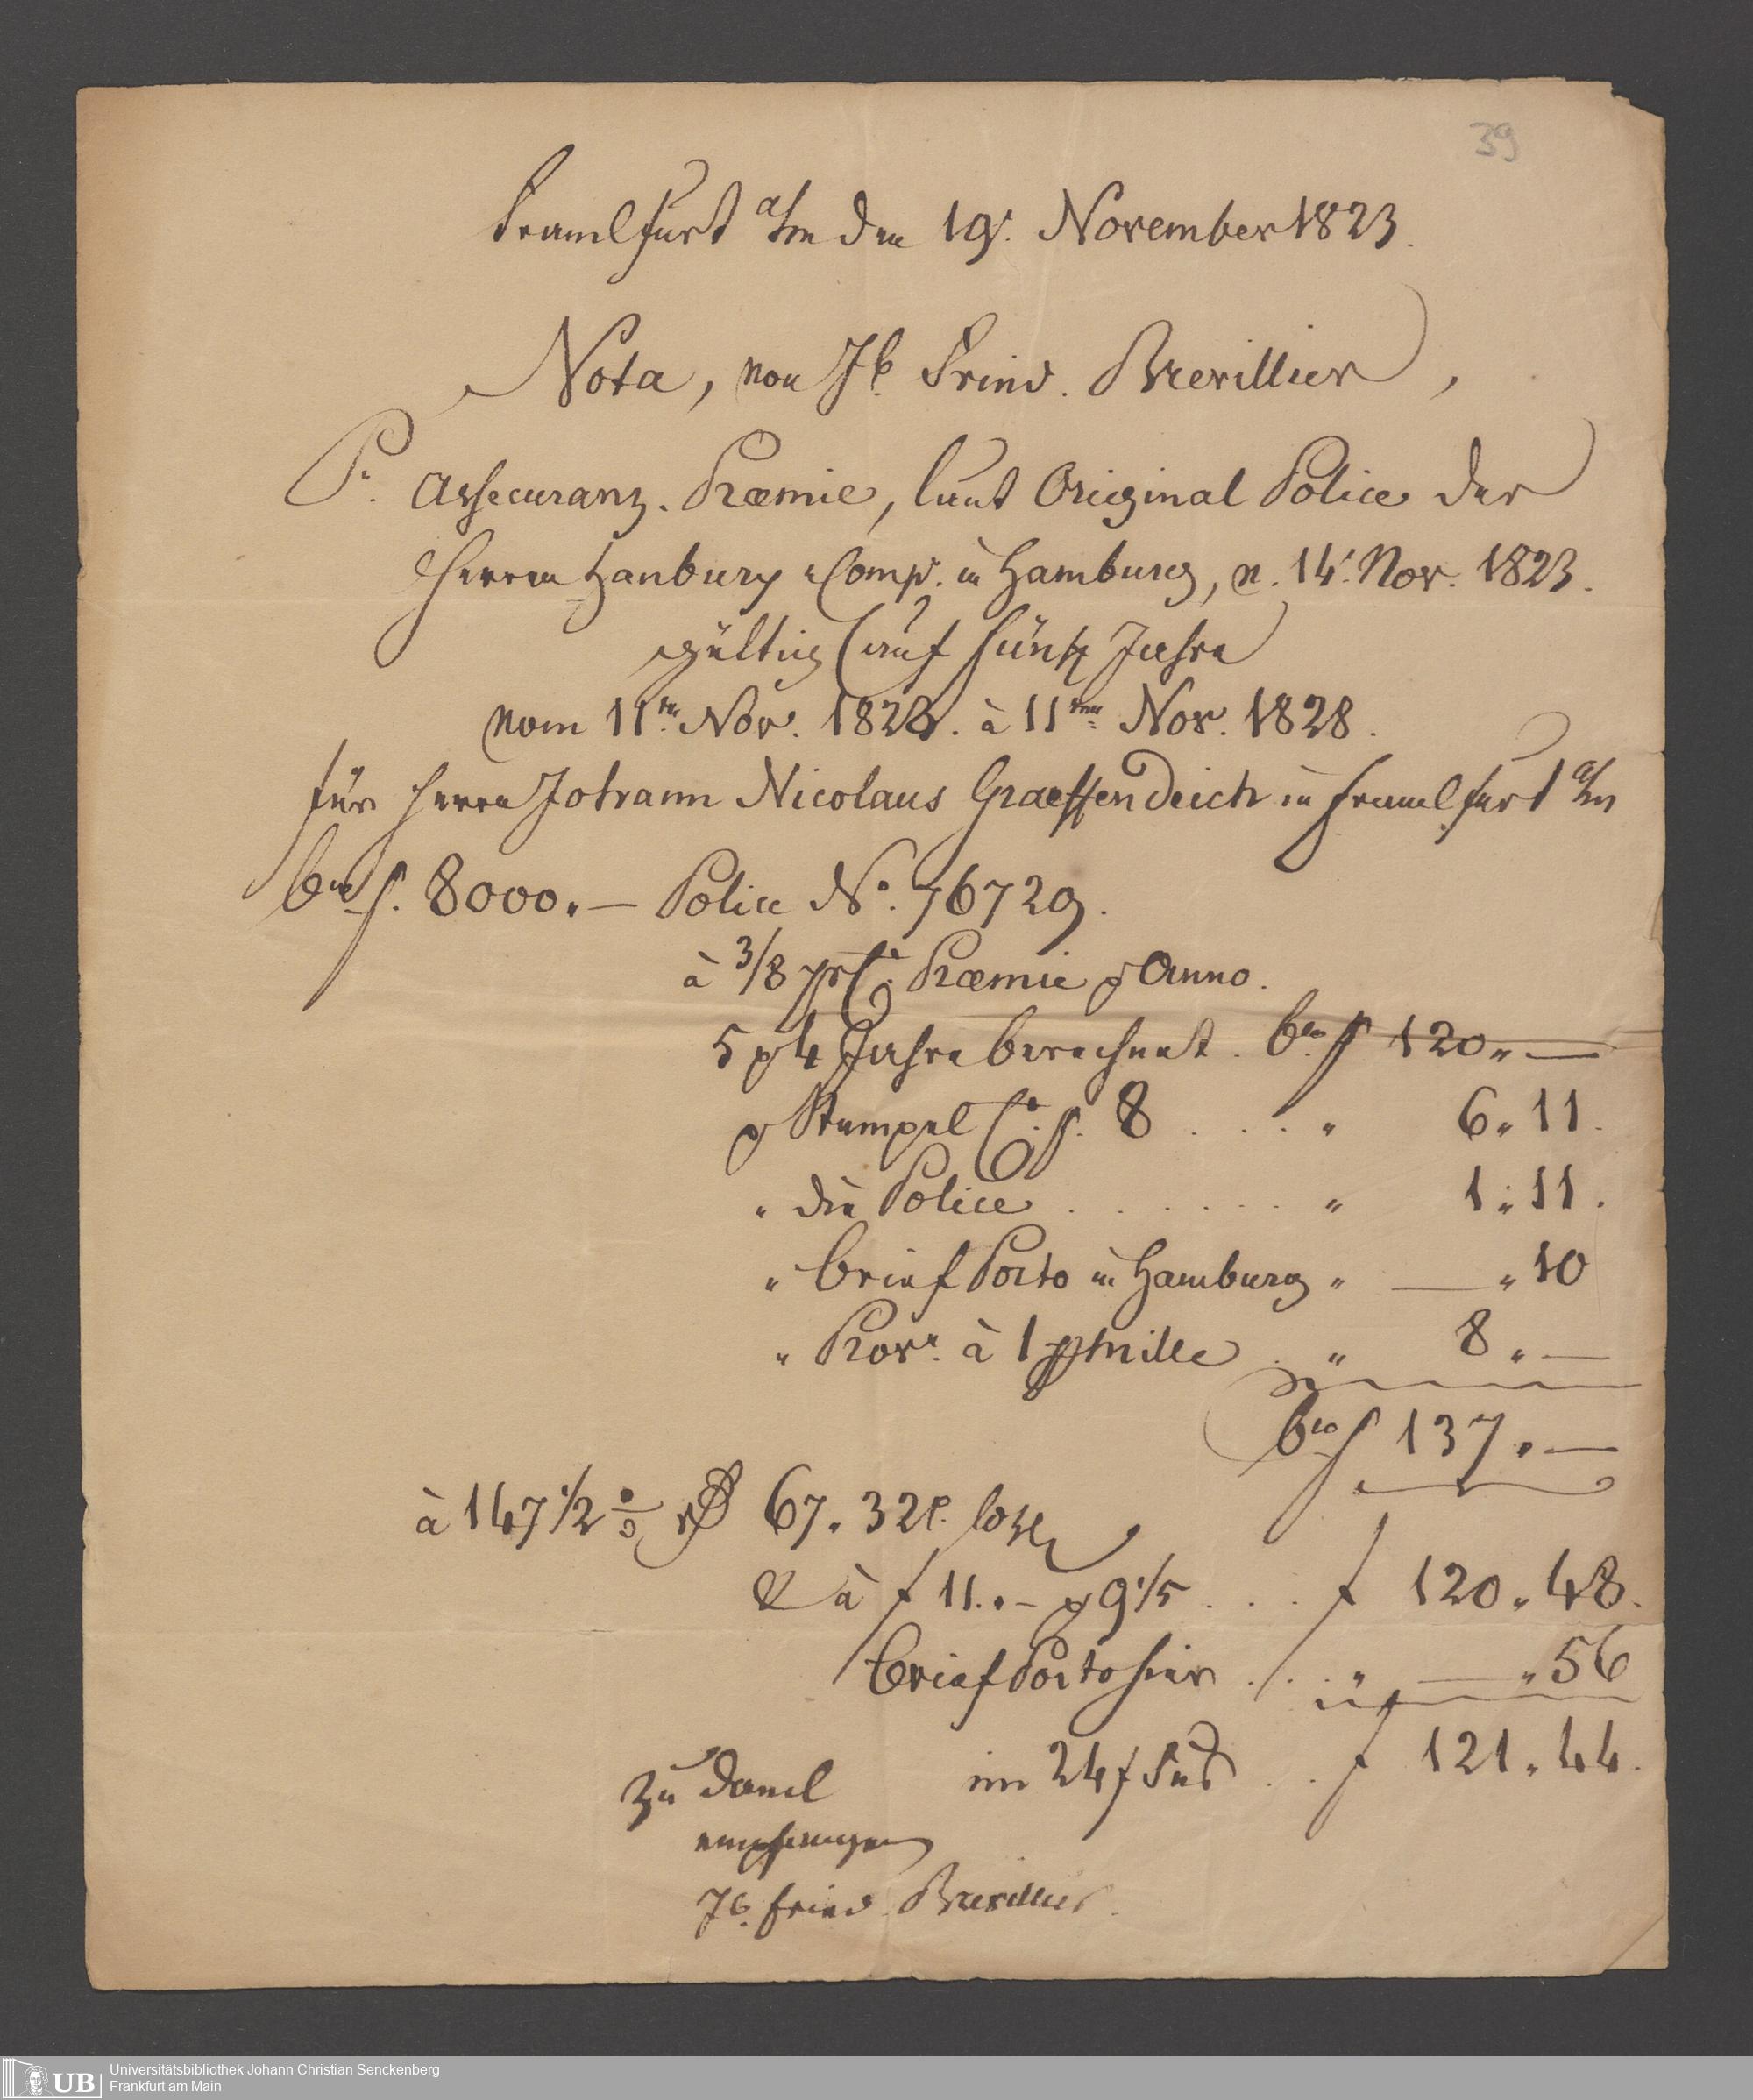 39
Frankfurt a/m den 19. November 1823.
Nota, von Jb. Fried. Brevillier,
Pr. Assecuranz. Præmie, laut Original Police der
Herren Hanbury & Comp. in Hamburg, v. 14. Nov. 1823.
gültig auf fünf Jahre
vom 11ten Nov. 1823. à 11ten Nov. 1828.
für Herrn Johann Nicolaus Graeffendeich in Frankfurt a/m
bco ƒ. 8000.— Police No. 76729.
à 3/8 prCt. Præmie p Anno.
5 p 4 Jahre berechnet. bco ƒ 120 „ —
p Stempel Ct. ƒ. 8 . . . . „ 6 „ 11.
„ die Police . . . . . . . „ 1 „ 11.
„ Brief Porto in Hamburg „ — „ 10
„ Prov. à 1 p mille . „ 8 „ —
bco ƒ 137 „ —
à 147 1/2 % 67. 32
& à f 11. „ — p 9 1/5 . . . f 120 „ 48.
Brief Porto hier . . . „ — „ 56
im 24 f Fus . . f 121 „ 44.
zu Dank
empfangen
Jb. Fried. Brevillier.
UB
Universitätsbibliothek Johann Christian Senckenberg
Frankfurt am Main